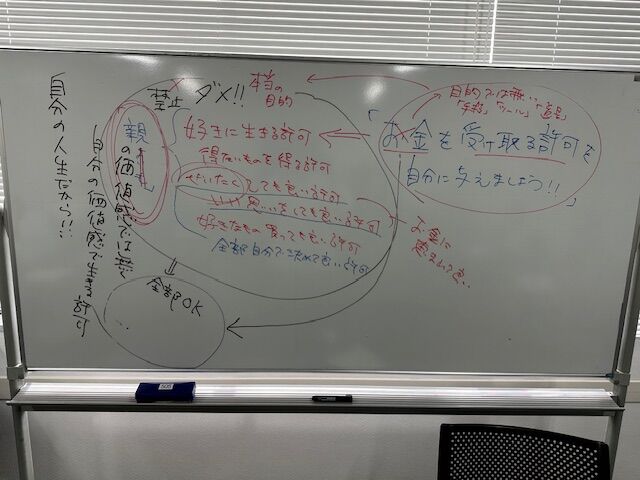 自分の人生だから!!!
親
の価値感では無く
自分の価値感で生きる許可
禁止
ダメ!!
本当の
目的
好きに生きる許可
得たいものを得る許可
ぜいたくしても良い許可
いい思いをしても良い許可
好きなもの買っても良い許可
全部自分で決めて良い許可
⇓
全部OK
目的では無い
「手段」「ツール」「道具」
「お金を受け取る許可を
自分に与えましょう!!」
お金に